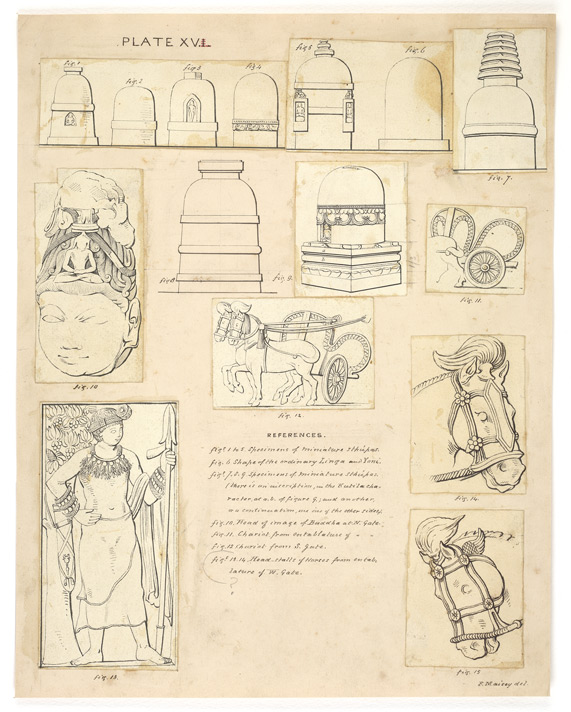 PLATE XVI
fig. 1
fig. 2
fig. 3
fig. 4
fig. 5
fig. 6
fig. 7.
fig. 8
fig. 9.
fig. 10
fig. 11.
fig. 12.
REFERENCES.
figs. 1 to 5 Specimens of miniature Sthúpas.
fig. 6 Shape of the ordinary Linga and Yoni.
figs 7. 8. 9 Specimens of miniature Sthúpas.
(there is an inscription, in the Kutila cha-
racter, at a.b. of figure 9, and another,
a continuation, on one of the other sides)
fig. 10. Head of image of Buddha at N. Gate.
fig. 11. Chariot from entablature of " "
fig. 12 Chariot from S. Gate.
figs 13. 14. Head-stalls of Horses from entab-
lature of W. Gate.
?
fig. 13.
fig. 14.
fig. 15
del.